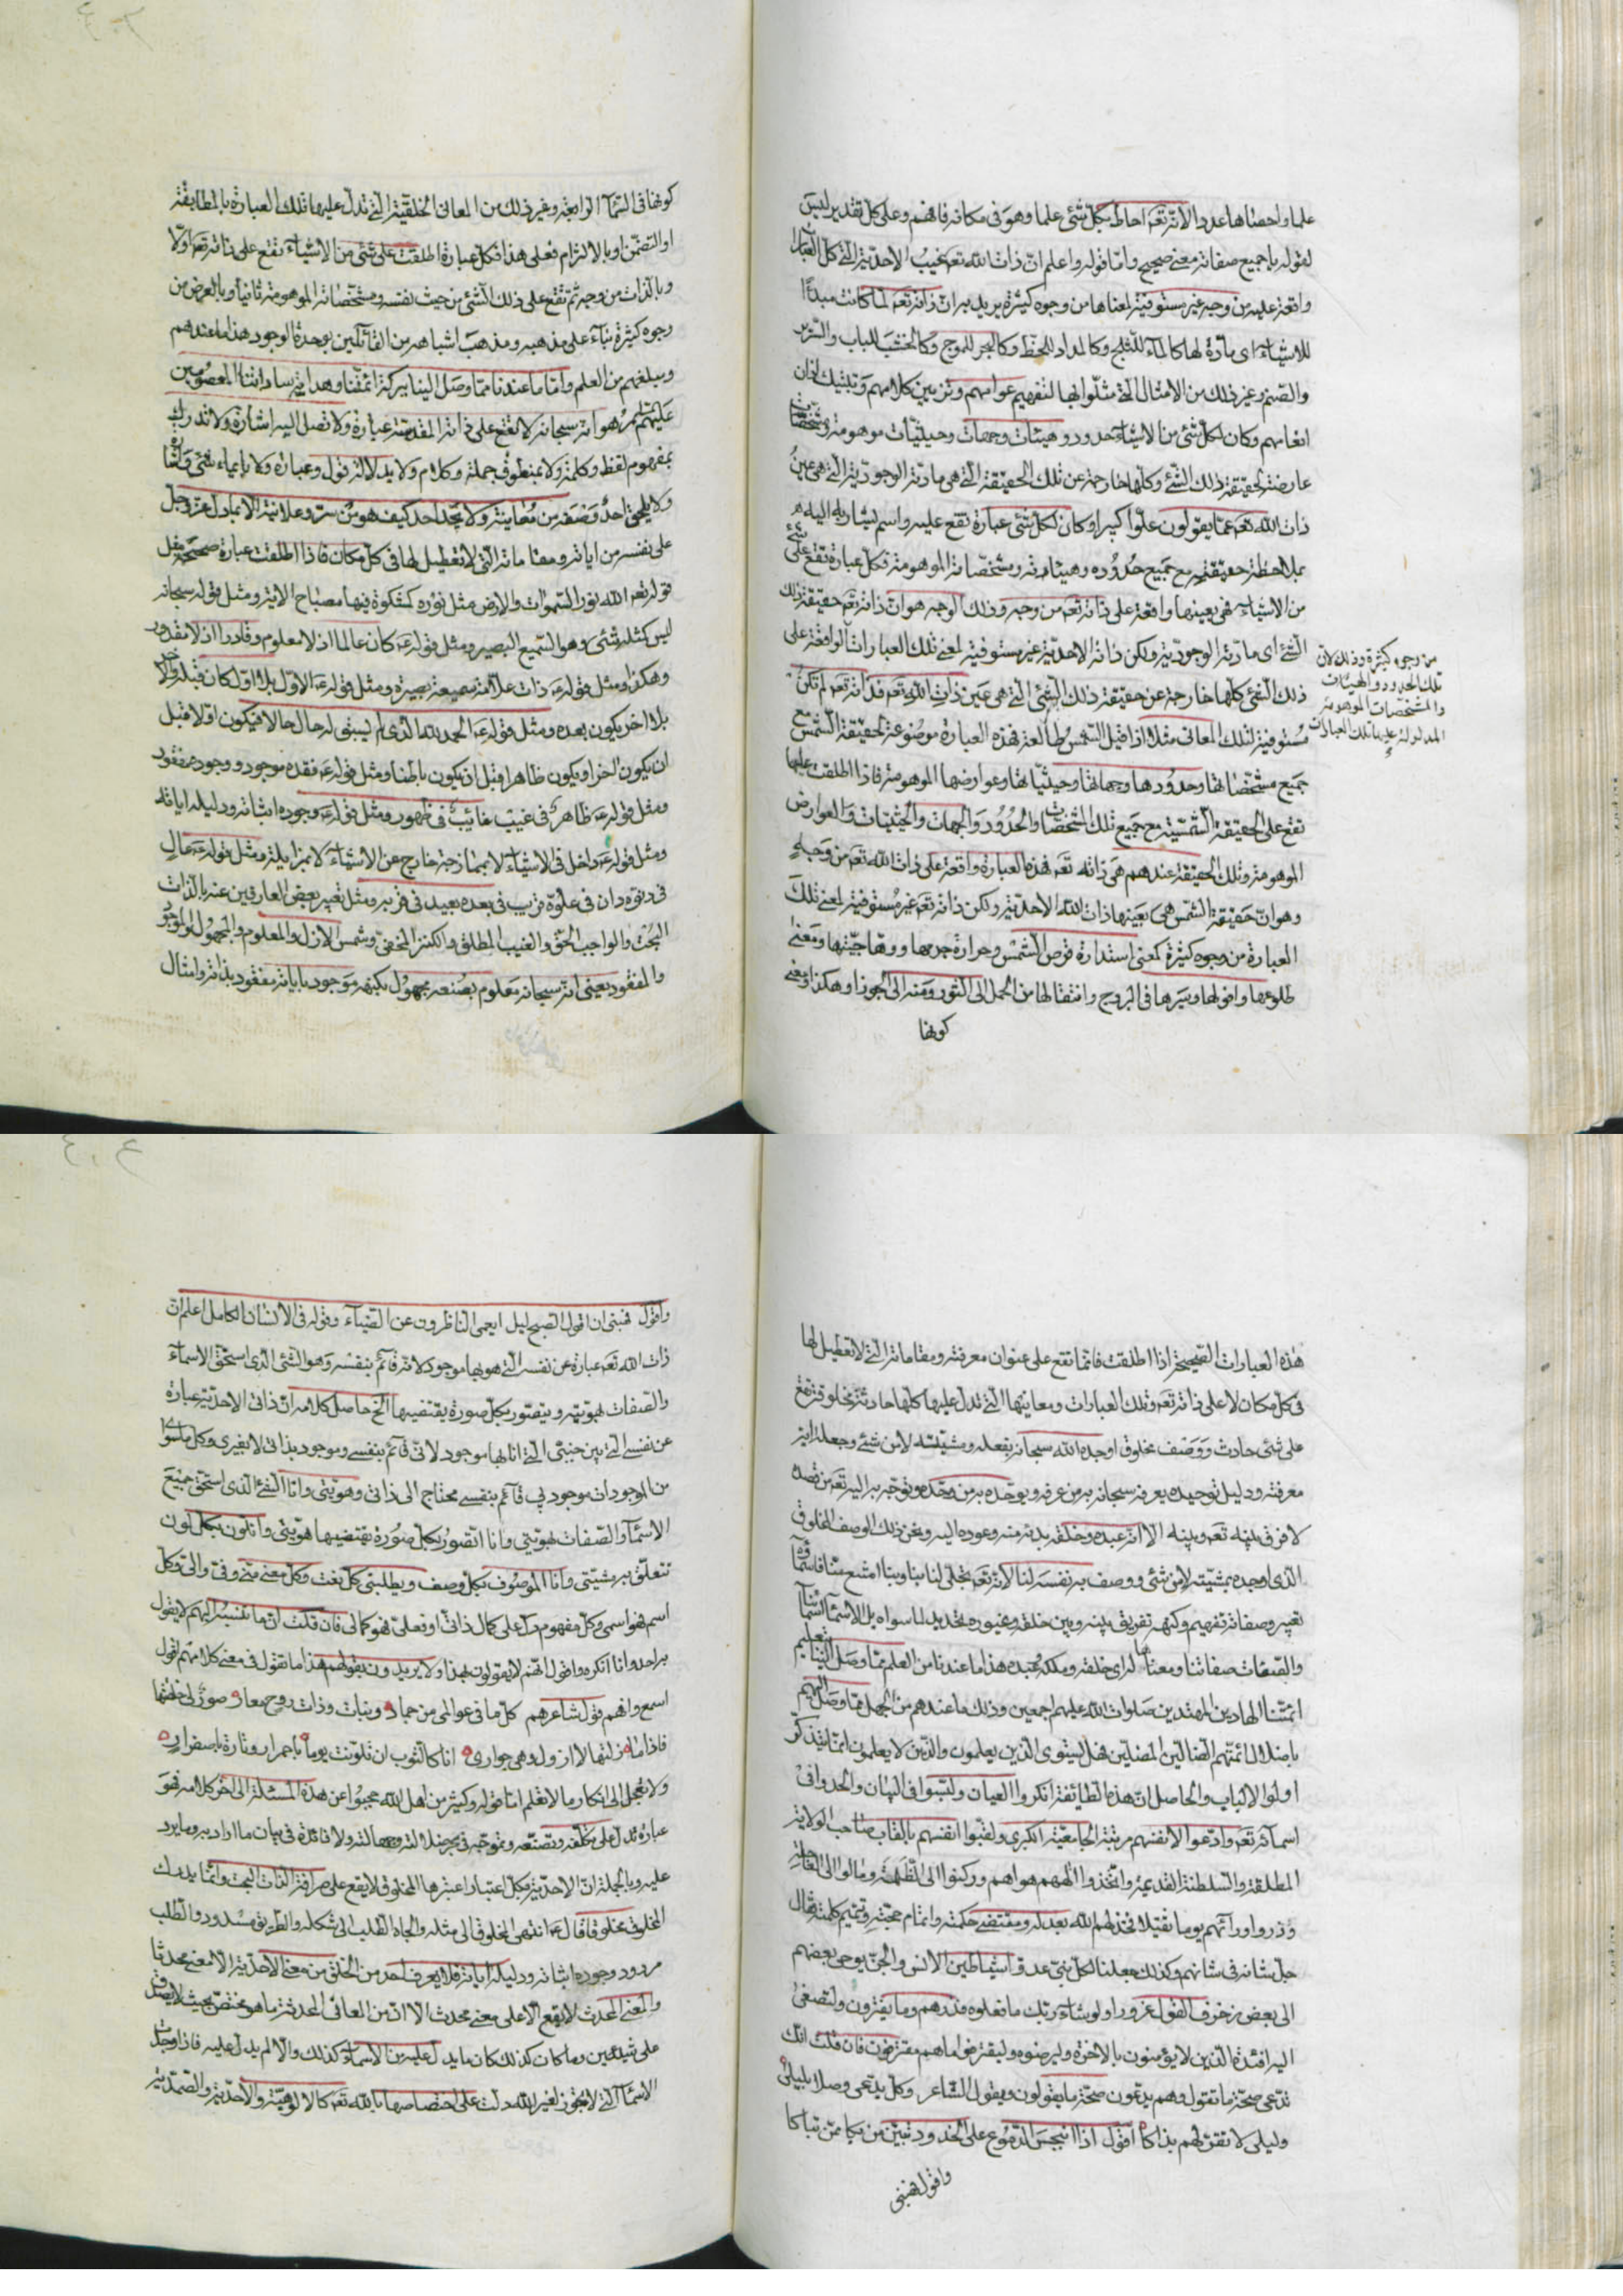 علما واحصاها عددا لانّه تعه احاط بكلّ شئ علما وهو فى مكانه فافهم وعلى كلّ تقدير ليس
لقوله باجميع صفاته معنى صحيح وامّا قوله واعلم انّ ذات الله تعه غيب الاحديّة الّتى كلّ العبارات
واقعة عليه من وجه غير مستوفية لمعناها من وجوه كثيرة يريد به انّ ذاته تعه لمّا كانت مبدءًا
للاشياء اى مادّة لها كالماء للثلج وكالمداد للخطّ وكالبحر للموج وكالخشب للباب والسّرير
والصّنم وغير ذلك من الامثال الّتى مثّلوا بها لتفهيم عوامهم وتزيين كلامهم وتثبيت اذان
انعامهم وكان لكلّ شئ من الاشياء حدود وهيئات وجهات وحيثيّات موهومة ومشخّصات
عارضة لحقيقة ذلك الشّئ وكلّها خارجة عن تلك الحقيقة الّتى هى مادّته الوجوديّة الّتى هى عين
ذات الله تعه عمّا يقولون علوّا كبيرا وكان لكلّ شئ عبارة تقع عليه واسم يشار به اليه
بملاحظة حقيقته مع جميع حدوده وهيئاته ومشخّصاته الموهومة فكلّ عبارة تقع على شئ
من الاشياء فهى بعينها واقعة على ذاته تعه من وجه وذلك الوجه هو انّ ذاته تعه حقيقة ذلك
الشّئ اى مادّته الوجوديّة ولكن ذاته الاحديّة غير مستوفية لمعنى تلك العبارات الواقعة على
من وجوه كثيرة وذلك لانّ
تلك الحدود والهيئات
والمشخصات الموهومة
المدلولة عليها بتلك العبارات
ذلك الشّئ كلّها خارجة عن حقيقة ذلك الشّئ الّتى هى عين ذات الله تعه فذاته تعه لم تكن
مستوفية لتلك المعانى مثلا اذا قيل الشّمس طالعة فهذه العبارة موضوعة لحقيقة الشّمس مع
جميع مشخّصاتها وحدودها وجهاتها وحيثيّاتها وعوارضها الموهومة فاذا اطلقت عليها
تقع على الحقيقة الشّمسيّة مع جميع تلك المشخّصات والحدود والجهات والحيثيّات والعوارض
الموهومة وتلك الحقيقة عندهم هى ذاته تعه فهذه العبارة واقعة على ذات الله تعه من وجه
وهو انّ حقيقة الشّمس هى بعينها ذات الله الاحديّة ولكن ذاته تعه غير مستوفية لمعنى تلك
العبارة من وجوه كثيرة كمعنى استدارة قرص الشّمس وحرارة جرمها ووهّاجيّتها ومعنى
طلوعها وافولها وسيرها فى البروج وانتقالها من الحمل الى الثّور ومنه الى الجوزا وهكذا ومعنى
كونها
كونها فى السّمآء الرابعة وغير ذلك من المعانى الخلقيّة الّتى تدلّ عليها تلك العبارة بالمطابقة
او التّضمّن او بالالتزام فعلى هذا فكلّ عبارة اطلقت على شئ من الاشياء تقع على ذاته تعه اوّلا
وبالذّات من وجه ثمّ تقع على ذلك الشّئ من حيث نفسه ومشخّصاته الموهومة ثانيا وبالعرض من
وجوه كثيرة بناء على مذهبه ومذهب اشباهه من القائلين بوحدة الوجود هذا ما عندهم
ومبلغهم من العلم وامّا ما عندنا ممّا وصل الينا ببركة ائمّتنا وهداية ساداتنا المعصومين
عليهم السّلام هو انّه سبحانه لا تقع على ذاته المقدّسة عبارة ولا تصل اليه اشارة ولا تدرك
بمفهوم لفظ وكلمة ولا بمنطوق جملة وكلام ولا بدلالة قول وعبارة ولا بايماء شئ واشارة
ولا يلحق احدٌ وصفه من معاينة ولا يحدّ احد كيف هو من سرّ وعلانية الا بما دلّ عزّ وجلّ
على نفسه من اياته ومقاماته الّتى لا تعطيل لها فى كلّ مكان فاذا اطلقت عبارة صحيحة مثل
قوله تعه الله نور السّموات والارض مثل نوره كمشكوة فيها مصباح الاية ومثل قوله سبحانه
ليس كمثله شئ وهو السّميع البصير ومثل قوله ع كان عالما اذ لا معلوم وقادرا اذ لا مقدور
وهكذا ومثل قوله ع ذات علّامة سميعة بصيرة ومثل قوله ع الاوّل بلا اوّل كان قبله والآخر
بلا اخر يكون بعده ومثل قوله ع الحمد لله الّذى لم يسبق له حال حالا فيكون اوّلا قبل
ان يكون اخرا ويكون ظاهرا قبل ان يكون باطنا ومثل قوله ع فقده موجود ووجوده مفقود
ومثل قوله ع ظاهرٌ فى غيب غائبٌ فى ظهور ومثل قوله ع وجوده اثباته ودليله اياته
ومثل قوله ع داخل فى الاشياء لا بممازجة خارج عن الاشياء لا بمزايلة ومثل قوله ع عالٍ
فى دنوّه دان فى علوّه قريب فى بعده بعيد فى قربه ومثل تعبير بعض العارفين عنه بالذّات
البحت والواجب الحقّ والغيب المطلق والكنز المخفىّ وشمس الازل والمعلوم والمجهول والموجود
والمفقود يعنى انّه سبحانه معلوم بصنعه مجهول بكنهه موجود باياته مفقود بذاته وامثال
هذه العبارات الصّحيحة اذا اطلقت فانّما تقع على عنوان معرفته ومقاماته الّتى لا تعطيل لها
فى كلّ مكان لا على ذاته تعه وتلك العبارات ومعانيها الّتى تدلّ عليها كلّها حادثة مخلوقة تقع
على شئ حادث ووصف مخلوق اوجده الله سبحانه بفعله ومشيّته لا من شئ وجعله اية
معرفته ودليل توحيده يعرفه سبحانه به من عرفه ويوحّده به من وحّده ويتوجّه به اليه تعه من قصده
لا فرق بينه تعه وبينه الا انّه عبده وخلقه بدئه منه وعوده اليه ونحن ذلك الوصف المخلوق
الّذى اوجده بمشيّته لا من شئ ووصف به نفسه لنا لانّه تعه تجلّى لنا بنا وبنا امتنع منّا فاسماؤه
تعبير وصفاته تفهيم وكنهه تفريق بينه وبين خلقه وغيوره تحديد لما سواه بل الاسمآء اسمآئنا
والصّفات صفاتنا ومعنانا لدى خلقه وملكه وعبيده هذا ما عندنا من العلم ممّا وصل الينا بتعليم
ائمّتنا الهادين المهتدين صلوات الله عليهم اجمعين وذلك ما عندهم من الجهل ممّا وصل اليهم
باضلال ائمّتهم الضّالّين المضلّين فهل يستوى الّذين يعلمون والّذين لا يعلمون انّما يتذكّر
اولوا الالباب والحاصل انّ هذه الطّائفة انكروا العيان ولبّسوا فى البيان والحدوا فى
اسمآئه تعه وادّعوا لانفسهم مرتبة الجامعيّة الكبرى ولقّبوا انفسهم بالقاب صاحب الولاية
المطلقة والسّلطنة القديمة واتّخذوا الههم هواهم وركنوا الى الظّلمة ومالوا الى العاجلة
وذروا ورائهم يوما ثقيلا فخذلهم الله بعدله ومقتضى حكمته واتمام حجّته وتتميم كلمته فقال
جلّ شانه فى شانهم وكذلك جعلنا لكلّ نبىّ عدوّا شياطين الانس والجنّ يوحى بعضهم
الى بعض زخرف القول غرورا ولو شاء ربّك ما فعلوه فذرهم وما يفترون ولتصغى
اليه افئدة الّذين لا يؤمنون بالاخرة وليرضوه وليقترفوا ما هم مقترفون فان قلت انّك
تدّعى صحّة ما تقول وهم يدّعون صحّة ما يقولون ويقول الشّاعر وكلّ يدّعى وصلا بليلى
وليلى لا تقرّ لهم بذاكا اقول اذا انبجس الدّموع على الخدود تبيّن من بكا ممّن تباكا
واقول فهبنى
واقول فهبنى ان اقول الصّبح ليل ايعمى النّاظرون عن الضّياء وقوله فى الانسان الكامل اعلم انّ
ذات الله تعه عبارة عن نفسه الّتى هو بها موجود لانّه قائم بنفسه وهو الشّئ الّذى استحقّ الاسماء
والصّفات بهويّته ويتصوّر بكلّ صورة يقتضيها الخ حاصل كلامه انّ ذاتى الاحديّة عبارة
عن نفسى الّتى بين جنبىّ الّتى انا بها موجود لانّى قائم بنفسى وموجود بذاتى لا بغيرى وكلّ ما سوائى
من الموجودات موجود بى قائم بنفسى محتاج الى ذاتى وهويّتى وانا الشّئ الّذى استحقّ جميع
الاسمآء والصّفات بهويّتى وانا اتصوّر بكلّ صورة تقتضيها هويّتى وانا لون بكلّ لون
تتعلّق به مشيّتى وانا الموصوف بكلّ وصف ويطلبنى كلّ نعت وكلّ معنى منّى وفىّ والىّ وكلّ
اسم فهو اسمى وكلّ مفهوم دلّ على كمال ذاتىّ او فعلىّ فهو كمالى فان قلت انّ ما تنسبه اليهم لا يقول
به احد وانا انكره واقول انّهم لا يقولون بهذا ولا يريدون بقولهم هذا ما تقول فى معنى كلامهم اقول
اسمع وافهم قول شاعرهم كلّ ما فى عوالمى من جماد ونبات وذات روح معار صور لى خلعتها
فاذا ما زلتها لا ازول وهى جوارى انا كالثوب ان تلوّنت يوما باحمرار وتارة باصفرار
ولا تعجل الى انكار ما لا تعلم امّا قوله وكثير من اهل الله حجبوا عن هذه المسئلة الى اخر كلامه فهو
عبارة تدلّ على تكلّفه وتصنّعه وتموّجه فى بحر ضلالته وجهالته ولا فائدة فى بيان ما اراد به وما يرد
عليه وبالجملة انّ الاحديّة بكلّ اعتبار اعتبرها المخلوق لا يقع على صرافة الذّات البحت وانّما يدرك
المخلوق مخلوقا قال ع انتهى المخلوق الى مثله والجاه الطّلب الى شكله والطّريق مسدود والطّلب
مردود وجوده اثباته ودليله اياته فلا يعرف احد من الخلق من معنى الاحديّة الا معنى محدثا
والمعنى المحدث لا يقع الّا على معنى محدث الا انّ من المعانى المحدثة ما هو مختصّ بحيث لا يصدق
على شيئين وما كان كذلك كان ما يدلّ عليه من الاسماء كذلك والّا لم يدلّ عليه فاذا وجدت
الاسمآء الّتى لا تجوز لغير الله دلّت على اختصاصها بالله تعه كالالوهيّة والاحديّة والصّمديّة